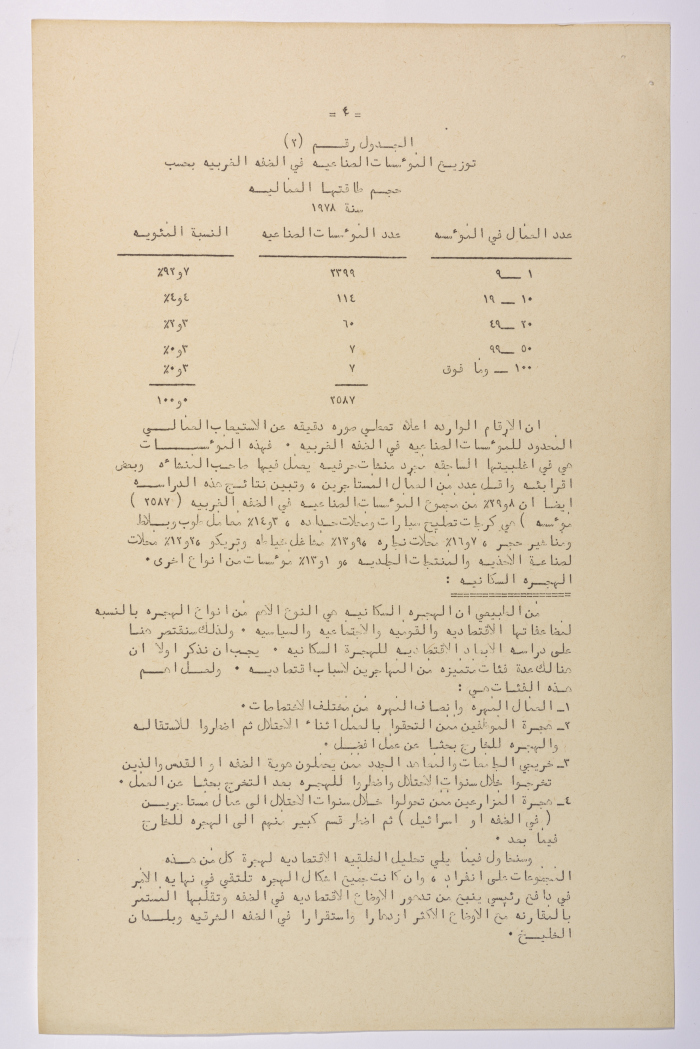 = ٤ =
الجدول رقم (٢)
توزيع المؤسسات الصناعيه في الضفه الغربيه بحسب
حجم طاقتها العماليه
سنة ١٩٧٨
عدد العمال في المؤسسه عدد المؤسسات الصناعيه النسبة المئويه
١ — ٩ ٢٣٩٩ ٧و٩٢٪
١٠ — ١٩ ١١٤ ٤و٤٪
٢٠ — ٤٩ ٦٠ ٣و٢٪
٥٠ — ٩٩ ٧ ٣و٠٪
١٠٠ — وما فوق ٧ ٣و٠٪
٢٥٨٧ ٠و١٠٠
ان الارقام الوارده اعلاه تعطي صوره دقيقه عن الاستيعاب العمالي
المحدود للمؤسسات الصناعيه في الضفه الغربيه ٠ فهذه المؤسسات
هي في اغلبيتها الساحقه مجرد منشئات حرفيه يعمل فيها صاحب المنشاه وبعض
اقربائه واقل عدد من العمال المستاجرين ، وتبين نتائج هذه الدراسه
ايضا ان ٨و٢٩٪ من مجموع المؤسسات الصناعيه في الضفه الغربيه ( ٢٥٨٧ )
مؤسسه ) هي كراجات تصليح سيارات ومحلات حداده ، ٣و١٤٪ معامل طوب وبلاط
ومناشير حجر ، ٧و١٦٪ محلات نجاره ، ٩و١٣٪ مشاغل خياطه وتريكو ، ٢و١٢٪ محلات
لصناعة الاحذيه والمنتجات الجلديه ، و ١و١٣٪ مؤسسات من انواع اخرى ٠
الهجره السكانيه :
من الطبيعي ان الهجره السكانيه هي النوع الاهم من انواع الهجره بالنسبه
لمضاعفاتها الاقتصاديه والقوميه والاجتماعيه والسياسيه ٠ ولذلك سنقتصر هنا
على دراسه الابعاد الاقتصاديه للهجرة السكانيه ٠ يجب ان نذكر اولا ان
هنالك عدة فئات متميزه من المهاجرين لاسباب اقتصاديه ٠ ولعل اهم
هذه الفئات هي :
١ـ العمال المهره وانصاف المهره من مختلف الاختصاصات ٠
٢ـ هجرة الموظفين ممن التحقوا بالعمل اثناء الاحتلال ثم اضطروا للاستقاله
والهجره للخارج بحثا عن عمل افضل ٠
٣ـ خريجي الجامعات والمعاهد الجدد ممن يحملون هوية الضفه او القدس والذين
تخرجوا خلال سنوات الاحتلال واضطروا للهجره بعد التخرج بحثا عن العمل ٠
٤ـ هجرة المزارعين ممن تحولوا خلال سنوات الاحتلال الى عمال مستاجرين
( في الضفه او اسرائيل ) ثم اضطر قسم كبير منهم الى الهجره للخارج
فيما بعد ٠
وسنحاول فيما يلي تحليل الخلفيه الاقتصاديه لهجرة كل من هذه
المجموعات على انفراد ، وان كانت جميع اشكال الهجره تلتقي في نهايه الامر
في دافع رئيسي ينبع من تدهور الاوضاع الاقتصاديه في الضفه وتقلبها المستمر
بالمقارنه مع الاوضاع الاكثر ازدهارا واستقرارا في الضفه الشرقيه وبلدان
الخليج ٠